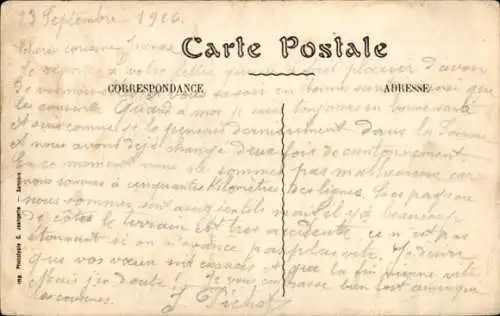 13 Septembre 1916.
Chère cousine Jeanne
Carte Postale
Je réponds à votre lettre qui m'a fait plaisir d'avoir
CORRESPONDANCE
ADRESSE
de vous savoir en bonne santé ainsi que
les cousins. Quand à moi je suis toujours en bonne santé
nous sommes dernièrement dans la Somme
nous avons déjà changé deux fois de cantonnement
En ce moment nous ne sommes pas malheureux car
nous sommes à cinquante kilomètres des lignes. Les pays ou
nous sommes sont assez gentils mais il y a beaucoup
de côtes le terrain est très accidenté, ce n'est pas
étonnant si on n'avance pas plus vite. Je désire
que vos vœux soient exaucés et que la fin vienne vite
Mais j'en doute! Je vous embrasse bien fort ainsi que
les cousins. J. Pichot
Imp. Phototypie G. Jeangette — Saintes